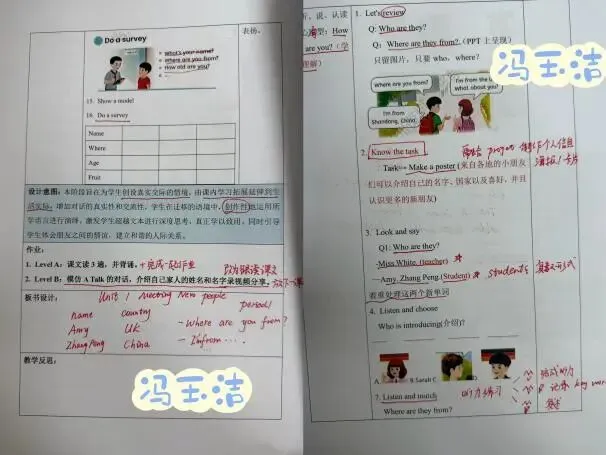 表扬。
Do a survey
What's your name?
Where are you from?
How old are you?
15. Show a model
16. Do a survey
Name
Where
Age
Fruit
设计意图:本阶段旨在为学生创设真实交际的情境,由课内学习拓展延伸到生
活实际,增加对话的真实性和交流性,学生在迁移的语境中,创造性地运用所
学语言进行演绎,激发学生超越文本进行深度思考,真正学以致用,同时引导
学生体会朋友之间的情谊,建立和谐的人际关系。
作业:
1. Level A:课文读3遍,并背诵。+完成一起作业 改为跟读课文
2. Level B:模仿A Talk的对话,介绍自己家人的姓名和名字录视频分享。放下一课
板书设计: Unit 1 Meeting New people
period1
name country
Amy UK - Where are you from?
Zhang Peng China - I'm from ...
教学反思:
冯玉洁
听、说、认读
心句型:How
are you?(学
理解)
1. Let's review
Q: Who are they?
Q: Where are they from?(PPT上呈现)
只留图片,只要who、where?
冯玉洁
Where are you from?
I'm from the U
What about you?
I'm from
Shandong, China.
2. Know the task
Task-- Make a poster(来自各地的小朋友
们可以介绍自己的名字、国家以及喜好,并且
认识更多的新朋友)
3. Look and say
Q1: Who are they?
-Miss White. (teacher)
-Amy, Zhang Peng.(Student) students
着重处理这两个新单词
4. Listen and choose
Who is introducing(介绍)?
A B.Sarah C
7. Listen and match 听力练习
Where are they from?
完成听力
记录 key word
复述